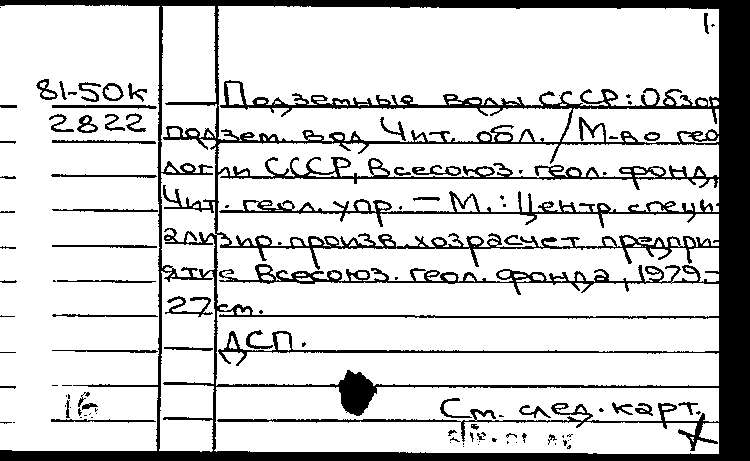 1.
81-50к Подземные воды СССР: Обзор
2822 подзем. вод Чит. обл. / М-во гео
логии СССР, Всесоюз. геол. фонд,
Чит. геол. упр. — М.: Центр. специ-
ализир. произв. хозрасчет. предпри-
ятие Всесоюз. геол. фонда, 1979.-
27 см.
ДСП.
16 См. след. карт.